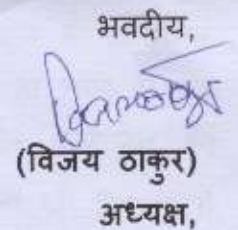 भवदीय,
(विजय ठाकुर)
अध्यक्ष,